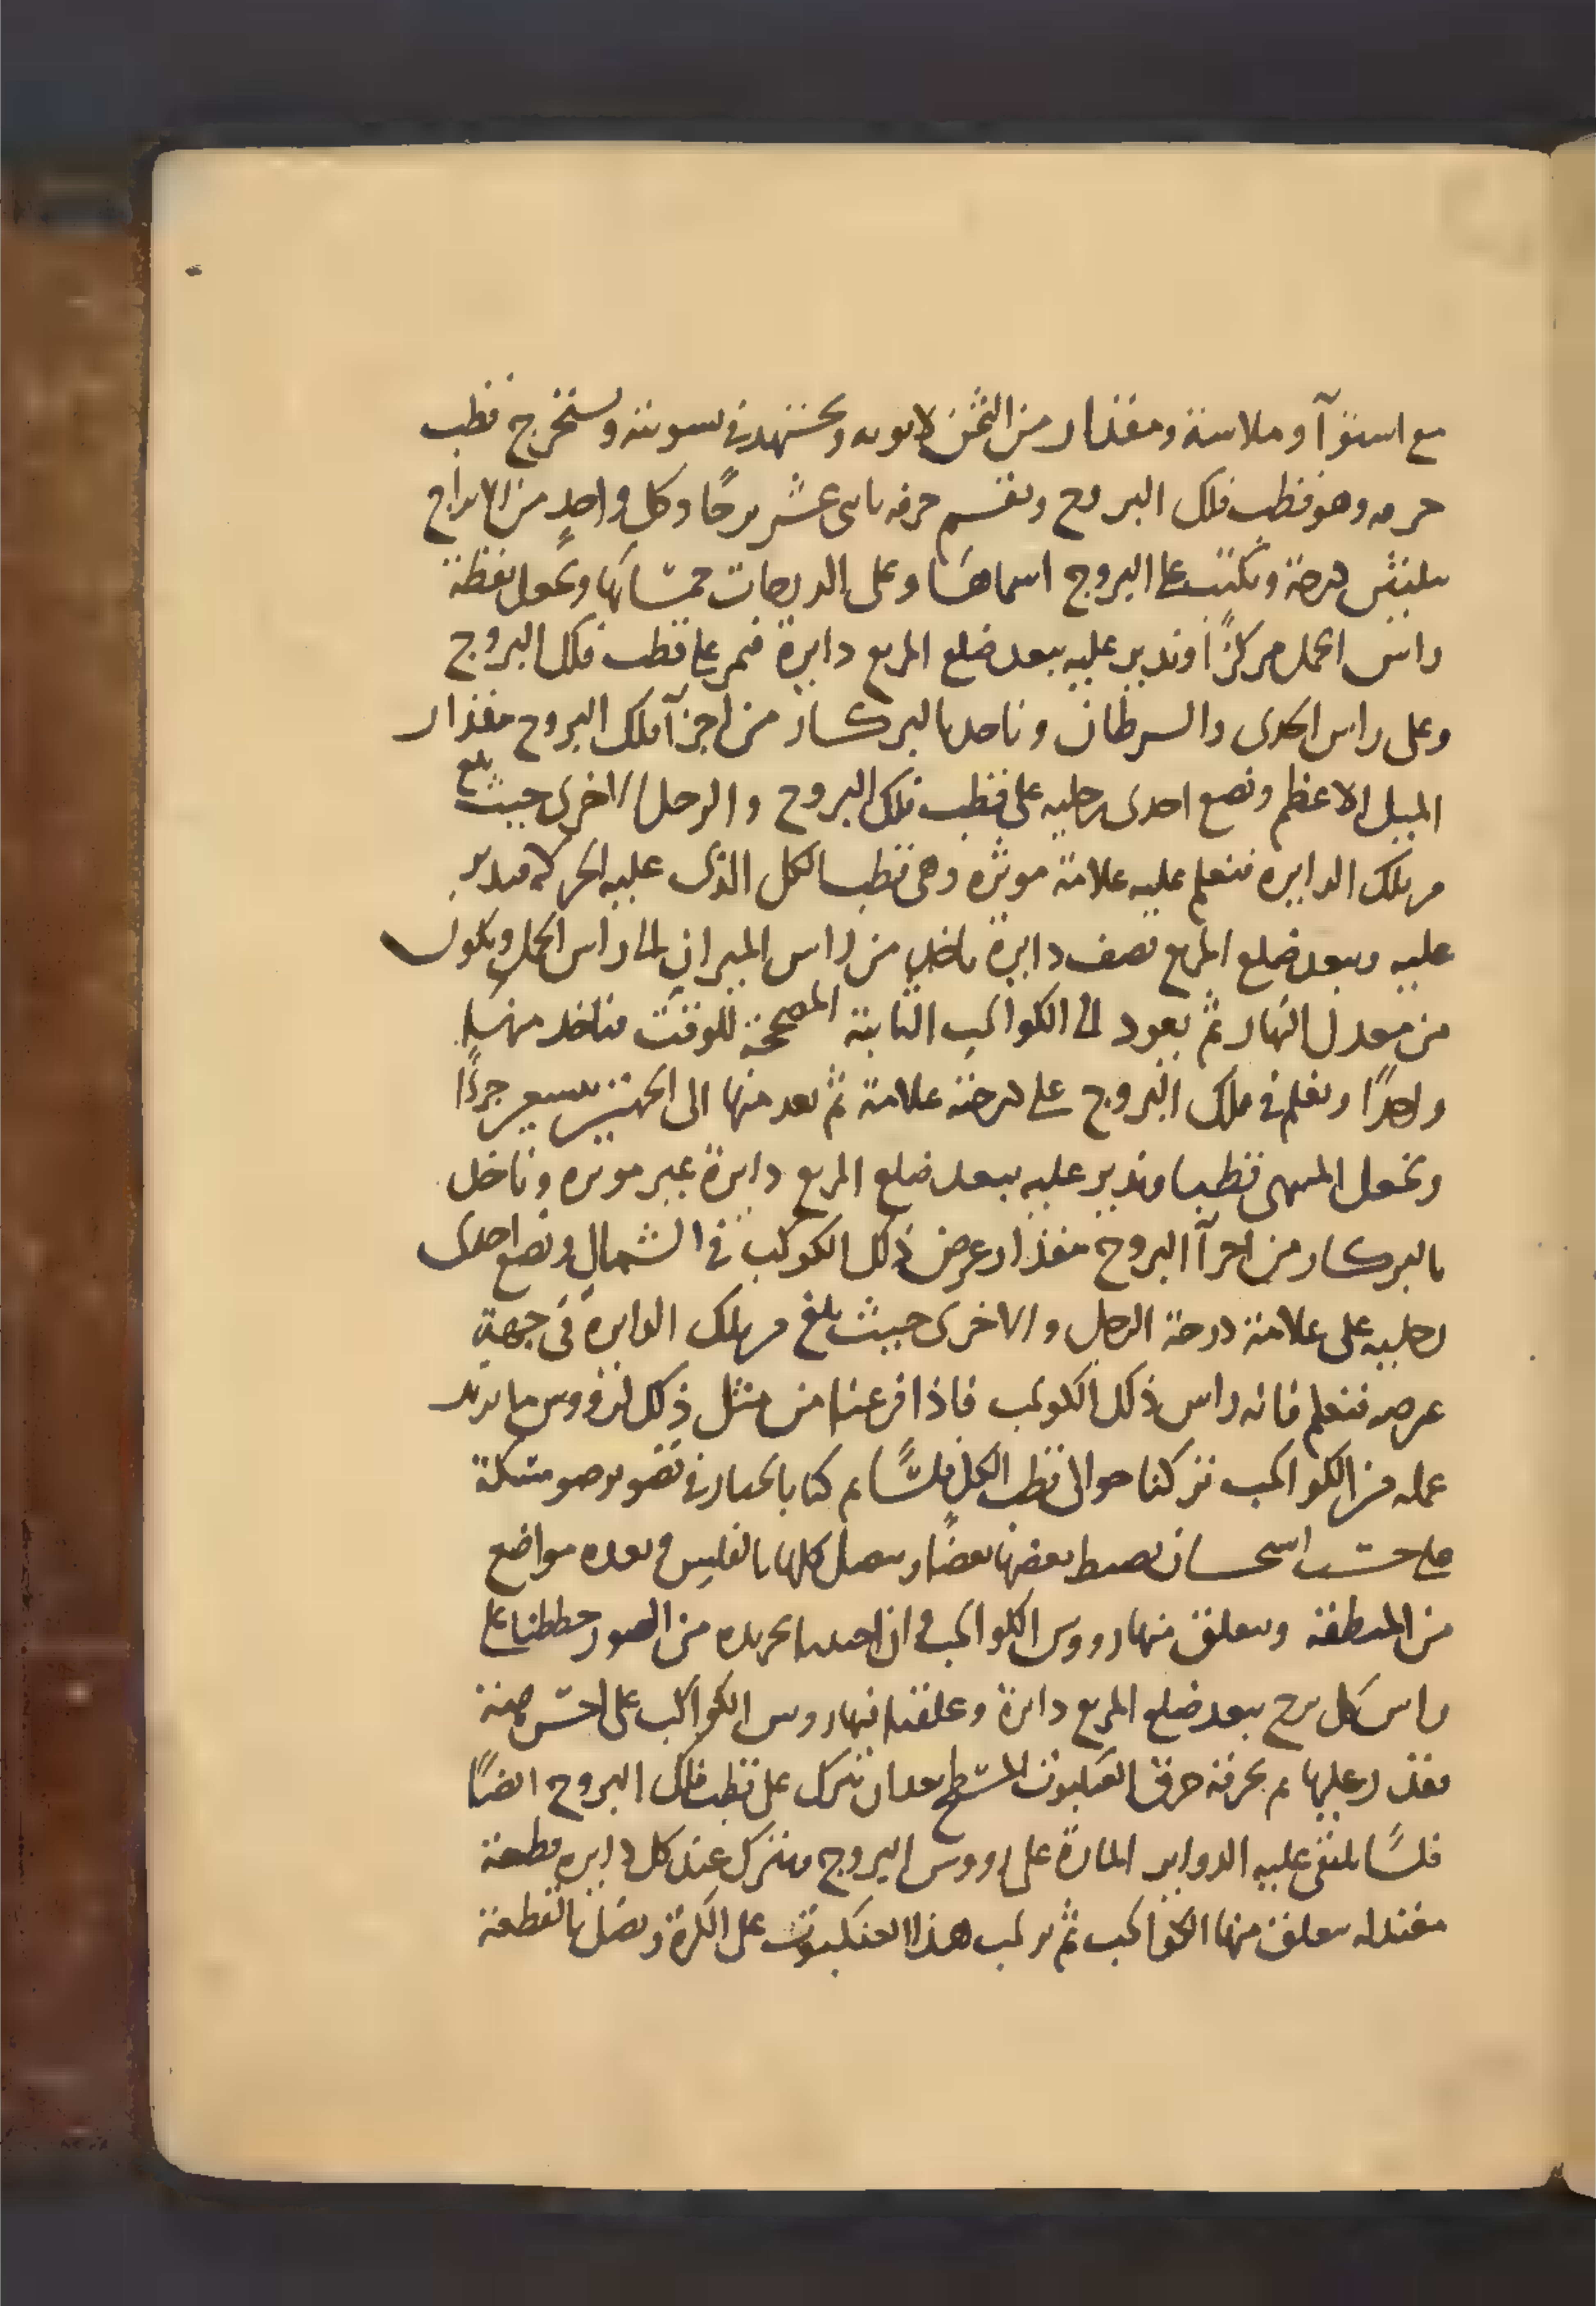 مع استوآ وملاسة ومقدار من الثخن لا يوبه ويجتهد في تسويته ونستخرج قطب
حرفه وهو قطب فلك البروج ونقسم حرفه باثنى عشر برجًا وكل واحدٍ من الابراج
بثلثين درجة ونكتب على البروج اسماها وعلى الدرجات خمساتها ونجعل نقطة
راس الحمل مركزًا وندير عليه ببعد ضلع المربع دايرة فتمر على قطب فلك البروج
وعلى راس الجدى والسرطان وناخد بالبركار من اجزآ فلك البروج مقدار
الميل الاعظم ونضع احدى رجليه على قطب فلك البروج والرجل الاخرى حيث بلغ
من تلك الدايرة فنعلم عليه علامة موثره وهى قطب الكل الذى عليه الحركة فندير
عليه وببعد ضلع المربع نصف دايرة ياخد من راس الميزان الى راس الحمل ويكون
من معدل النهار ثم نعود الى الكواكب الثابتة المصححة للوقت فناخد منها
واحدًا ونعلم في فلك البروج على درجته علامة ثم نعد منها الى الجهتين تسعين جزءًا
ونجعل المنتهى قطبا وندير عليه ببعد ضلع المربع دايرة غير موثره وناخد
بالبركار من اجزآ البروج مقدار عرض ذلك الكوكب في الشمال ونضع احدى
رجليه على علامة درجة الرجل والاخرى حيث بلغ من تلك الدايرة في جهة
عرضه فنعلم فانه راس ذلك الكوكب فاذا فرغنا من مثل ذلك لرووس ما نريد
عمله من الكواكب تركنا حوالى قطب الكل فلسًا ثم كنا بالخيار في تصوير صور مشبكة
على حسب استحسان نضبط بعضها بعضًا ويتصل كلها بالفلس وبعده مواضع
من المنطقة ويتعلق منها رووس الكواكب وان احببنا تجريده من الصور خططنا على
راس كل برج ببعد ضلع المربع دايرة وعلقنا منها رووس الكواكب على احسن هيئة
نقدر عليها ثم نخرقه خرق العنكبوت المسطح بعد ان نترك على قطب فلك البروج ايضًا
فلسًا يلتقى عليه الدواير المارة على رووس البروج ونترك عند كل دايره قطعة
مقتدله يتعلق منها الكواكب ثم نركب هذا العنكبوت على الكرة ونصل بالقطعة